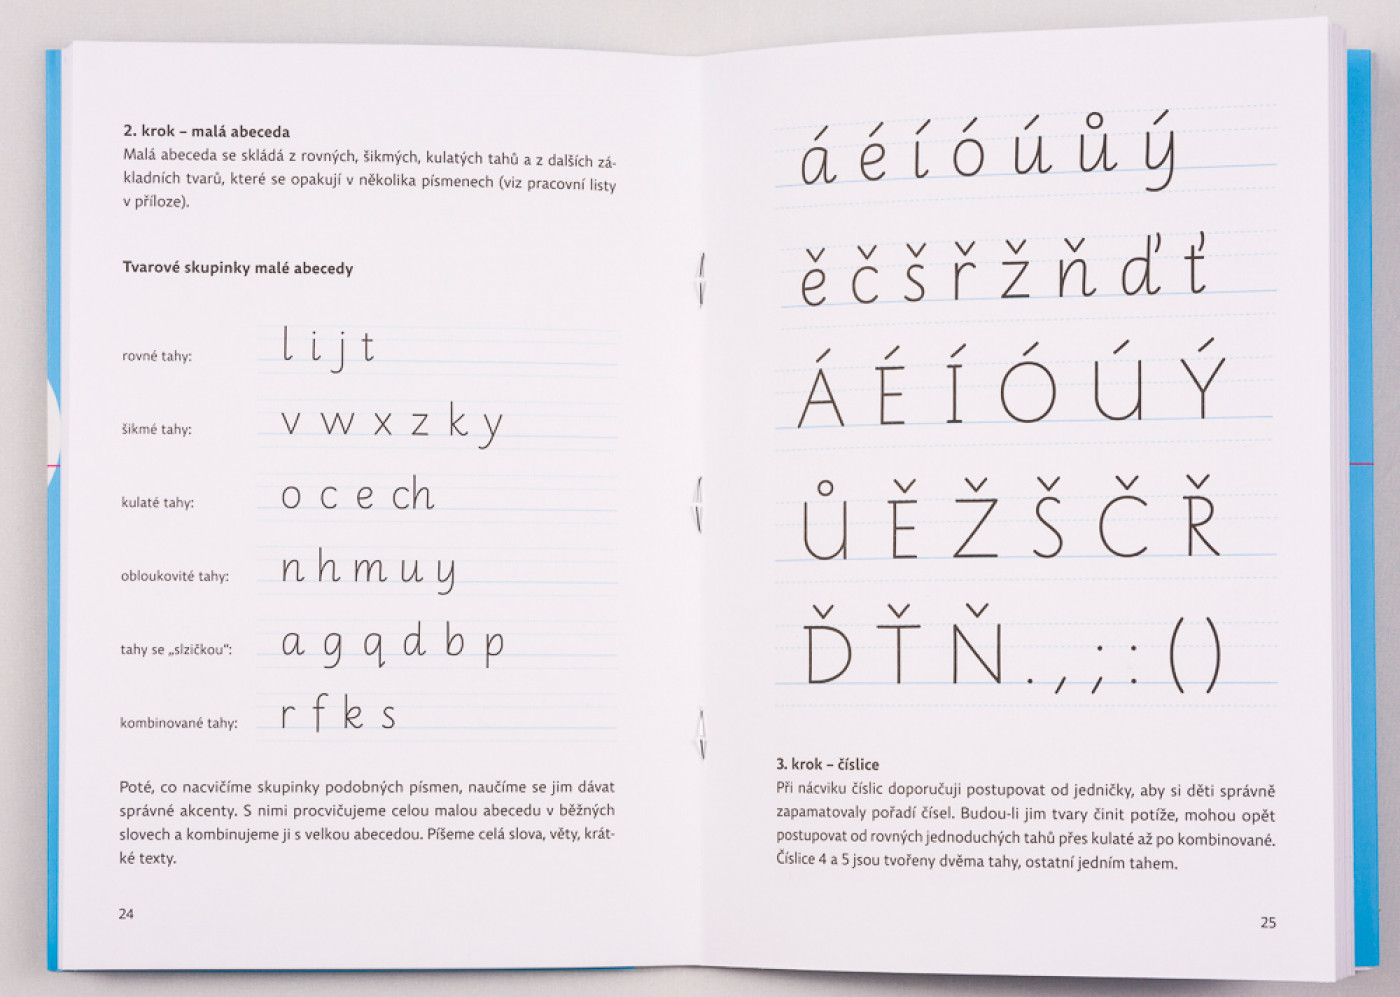 2. krok – malá abeceda
Malá abeceda se skládá z rovných, šikmých, kulatých tahů a z dalších zá-
kladních tvarů, které se opakují v několika písmenech (viz pracovní listy
v příloze).
Tvarové skupinky malé abecedy
rovné tahy: l i j t
šikmé tahy: v w x z k y
kulaté tahy: o c e ch
obloukovité tahy: n h m u y
tahy se „slzičkou“: a g q d b p
kombinované tahy: r f k s
Poté, co nacvičíme skupinky podobných písmen, naučíme se jim dávat
správné akcenty. S nimi procvičujeme celou malou abecedu v běžných
slovech a kombinujeme ji s velkou abecedou. Píšeme celá slova, věty, krát-
ké texty.
24
á é í ó ú ů ý
ě č š ř ž ň ď ť
Á É Í Ó Ú Ý
Ů Ě Ž Š Č Ř
Ď Ť Ň . , ; : ( )
3. krok – číslice
Při nácviku číslic doporučuji postupovat od jedničky, aby si děti správně
zapamatovaly pořadí čísel. Budou-li jim tvary činit potíže, mohou opět
postupovat od rovných jednoduchých tahů přes kulaté až po kombinované.
Číslice 4 a 5 jsou tvořeny dvěma tahy, ostatní jedním tahem.
25